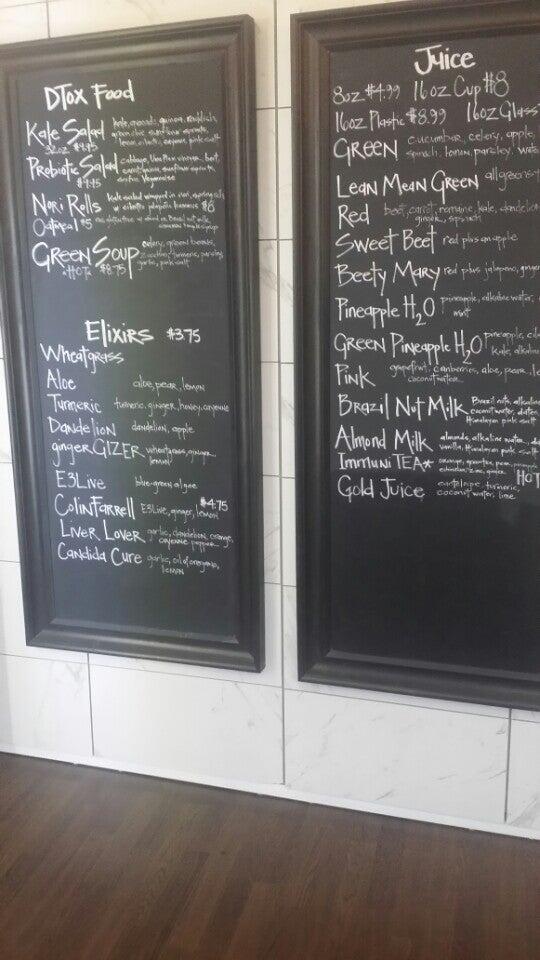 DTox Food
Kale Salad kale, avocado, quinoa, radish,
32oz $9.75 lemon, cilantro, cayenne, pink salt
Probiotic Salad cabbage,
$9.75
Nori Rolls kale salad wrapped in nori,
w cilantro jalapeño $8
Oatmeal $5
Green Soup celery, green beans,
*HOT* $8.75 zucchini, turmeric, parsley
garlic, pink salt
Elixirs $3.75
Wheatgrass
Aloe aloe, pear, lemon
Turmeric turmeric, ginger, honey, cayenne
Dandelion dandelion, apple
ginger GIZER wheatgrass, ginger,
lemon
E3Live blue-green algae
Colin Farrell E3Live, ginger, lemon $4.75
Liver Lover garlic, dandelion, orange,
cayenne pepper
Candida Cure garlic, oil of oregano,
lemon
Juice
8oz $4.99 16oz Cup $8
16oz Plastic $8.99 16oz Glass
Green cucumber, celery, apple,
spinach, lemon, parsley,
Lean Mean Green all greens
Red beet, carrot, romaine, kale, dandelion
ginger,
Sweet Beet red plus an apple
Beety Mary red plus jalapeno, ginger
Pineapple H2O pineapple, alkaline water,
mint
Green Pineapple H2O pineapple,
kale, alkaline
Pink grapefruit, cranberries, aloe, pear,
coconut water
Brazil Nut Milk Brazil nuts, alkaline
coconut water, dates,
Himalayan pink salt
Almond Milk almonds, alkaline water,
vanilla, Himalayan pink salt
ImmuniTEA* orange, green tea, pear,
echinacea, ginger HOT
Gold Juice cantelope, turmeric,
coconut water, lime